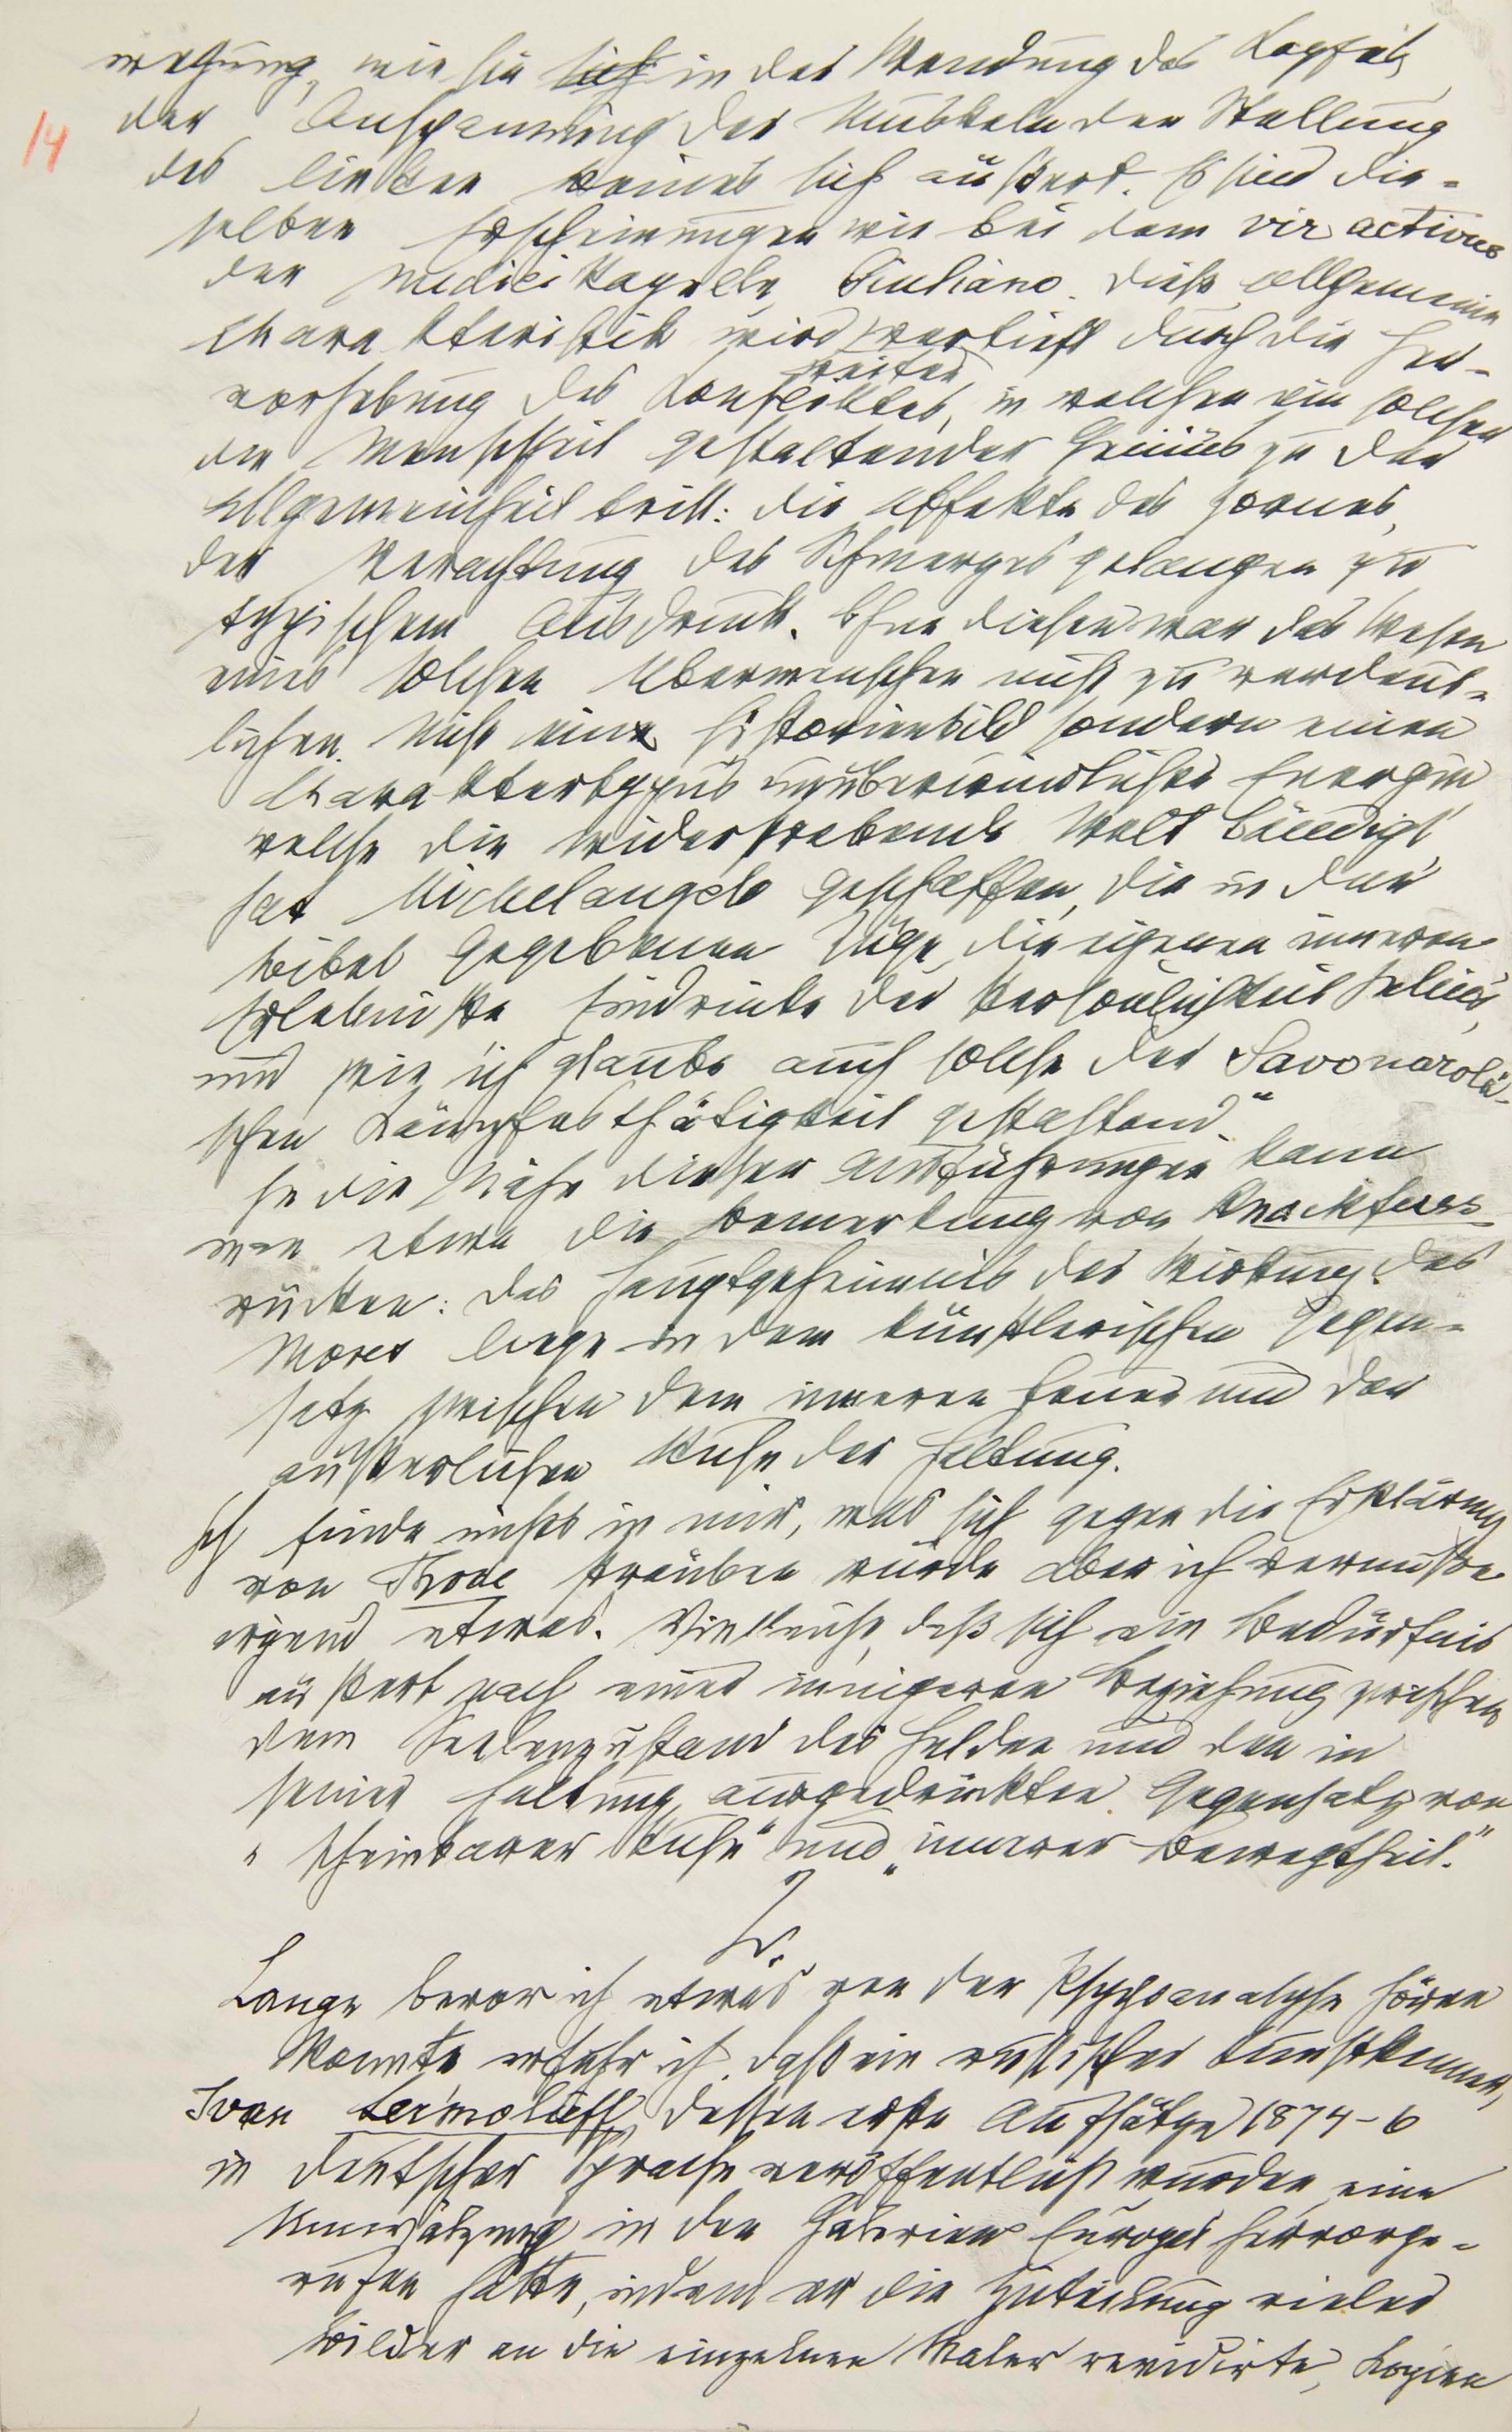 wegung, wie sie sich in der Wendung des Kopfes,
14
der Anspannung der Muskeln der Stellung
des linken Beines sich äußert. Es sind die-
selben Erscheinungen wie bei dem vir activus
der Medici Kapelle, Giuliano. Diese allgemeine
Charakteristik wird vertieft durch die Her-
weiter
vorhebung des Konfliktes, in welchen ein solcher
die Menschheit gestaltender Genius zu der
Allgemeinheit tritt: die Affekte des Zornes,
der Verachtung des Schmerzes gelangen zu
typischem Ausdruck. Ohne diesen war das Wesen
eines solchen Übermenschen nicht zu verdeut-
lichen. Nicht ein Historienbild sondern einen
Charaktertypus unüberwindlicher Energie
welche die widerstrebende Welt bändigt
hat Michelangelo geschaffen, die in der
Bibel gegebenen Züge, die eigenen inneren
Erlebnisse Eindrücke der Persönlichkeit Julius,
und wie ich glaube auch solche der Savonarola-
schen Kampfesthätigkeit gestaltend"
In die Nähe dieser Ausführungen kann
man etwa die Bemerkung von Knackfuss
rücken: Das Hauptgeheimnis der Wirkung des
Moses liege in dem künstlerischen Gegen-
satz zwischen dem inneren Feuer und der
äußerlichen Ruhe der Haltung.
Ich finde nichts in mir, was sich gegen die Erklärung
von Thode sträuben würde aber ich vermisse
irgend etwas. Vielleicht, daß sich ein Bedürfnis
äußert nach einer innigeren Beziehung zwischen
dem Seelenzustand des Helden und den in
seiner Haltung ausgedrückten Gegensatz von
„scheinbarer Ruhe" und „innerer Bewegtheit."
2.
Lange bevor ich etwas von der Psychoanalyse hören
konnte erfuhr ich, daß ein russischer Kunstkenner,
Ivan Lermolieff, dessen erste Aufsätze 1874-6
in deutscher Sprache veröffentlicht wurden, eine
Umwälzung in den Galerien Europas hervorge-
rufen hatte, indem er die Zuteilung vieler
Bilder an die einzelnen Maler revidirte, Kopien